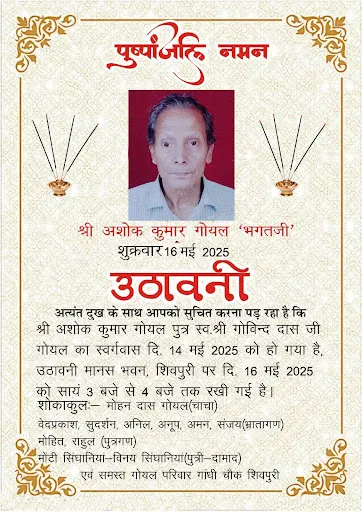 पुष्पांजलि नमन
श्री अशोक कुमार गोयल ‘भगतजी’
शुक्रवार 16 मई 2025
उठावनी
अत्यंत दुख के साथ आपको सुचित करना पड़ रहा है कि
श्री अशोक कुमार गोयल पुत्र स्व.श्री गोविन्द दास जी
गोयल का स्वर्गवास दि. 14 मई 2025 को हो गया है,
उठावनी मानस भवन, शिवपुरी पर दि. 16 मई 2025
को सायं 3 बजे से 4 बजे तक रखी गई है।
शोकाकुलः– मोहन दास गोयल(चाचा)
वेदप्रकाश, सुदर्शन, अनिल, अनूप, अमन, संजय(भ्रातागण)
मोहित, राहुल (पुत्रगण)
मोंटी सिंघानिया–विनय सिंघानियां(पुत्री-दामाद)
एवं समस्त गोयल परिवार गांधी चौक शिवपुरी